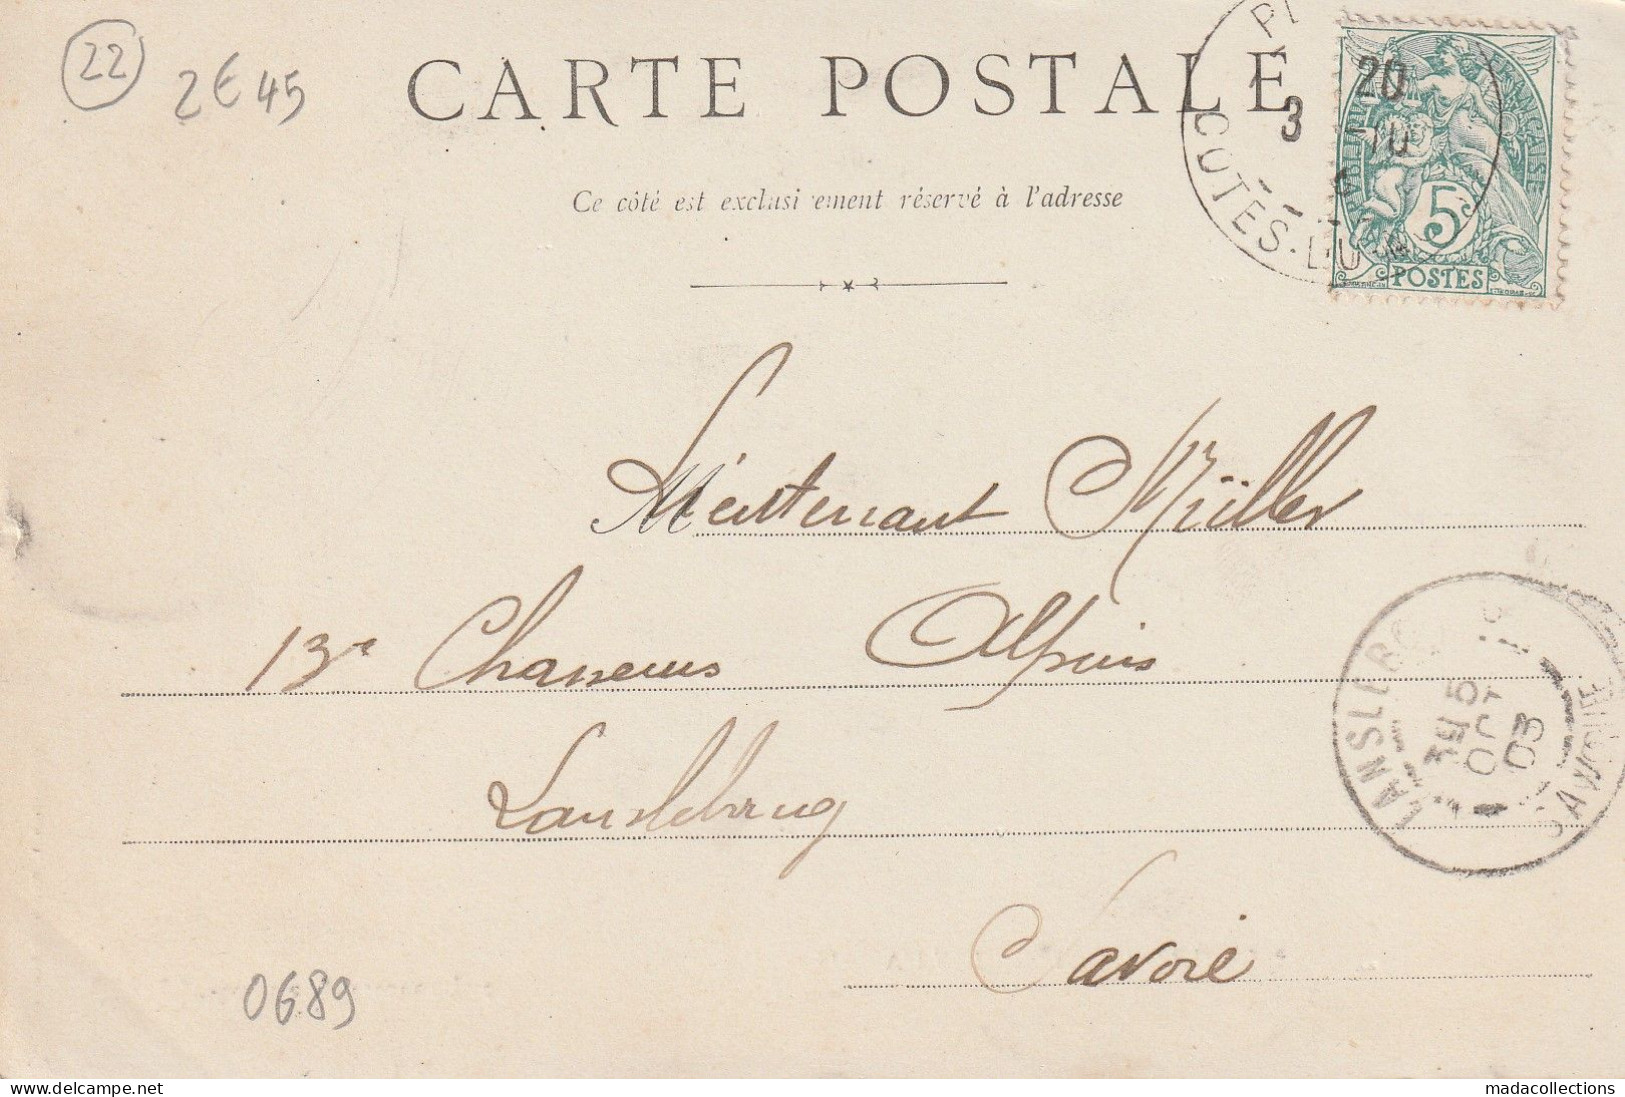 22
2E45
CARTE POSTALE
Ce côté est exclusivement réservé à l'adresse
20
3 10
COTES-DU
FRANÇAISE
5
POSTES
Lieutenant Müller
13e Chasseurs Alpins
Lanslebourg
Savoie
LANSLEBO
5
OCT
03
SAVOIE
0689
madacollections